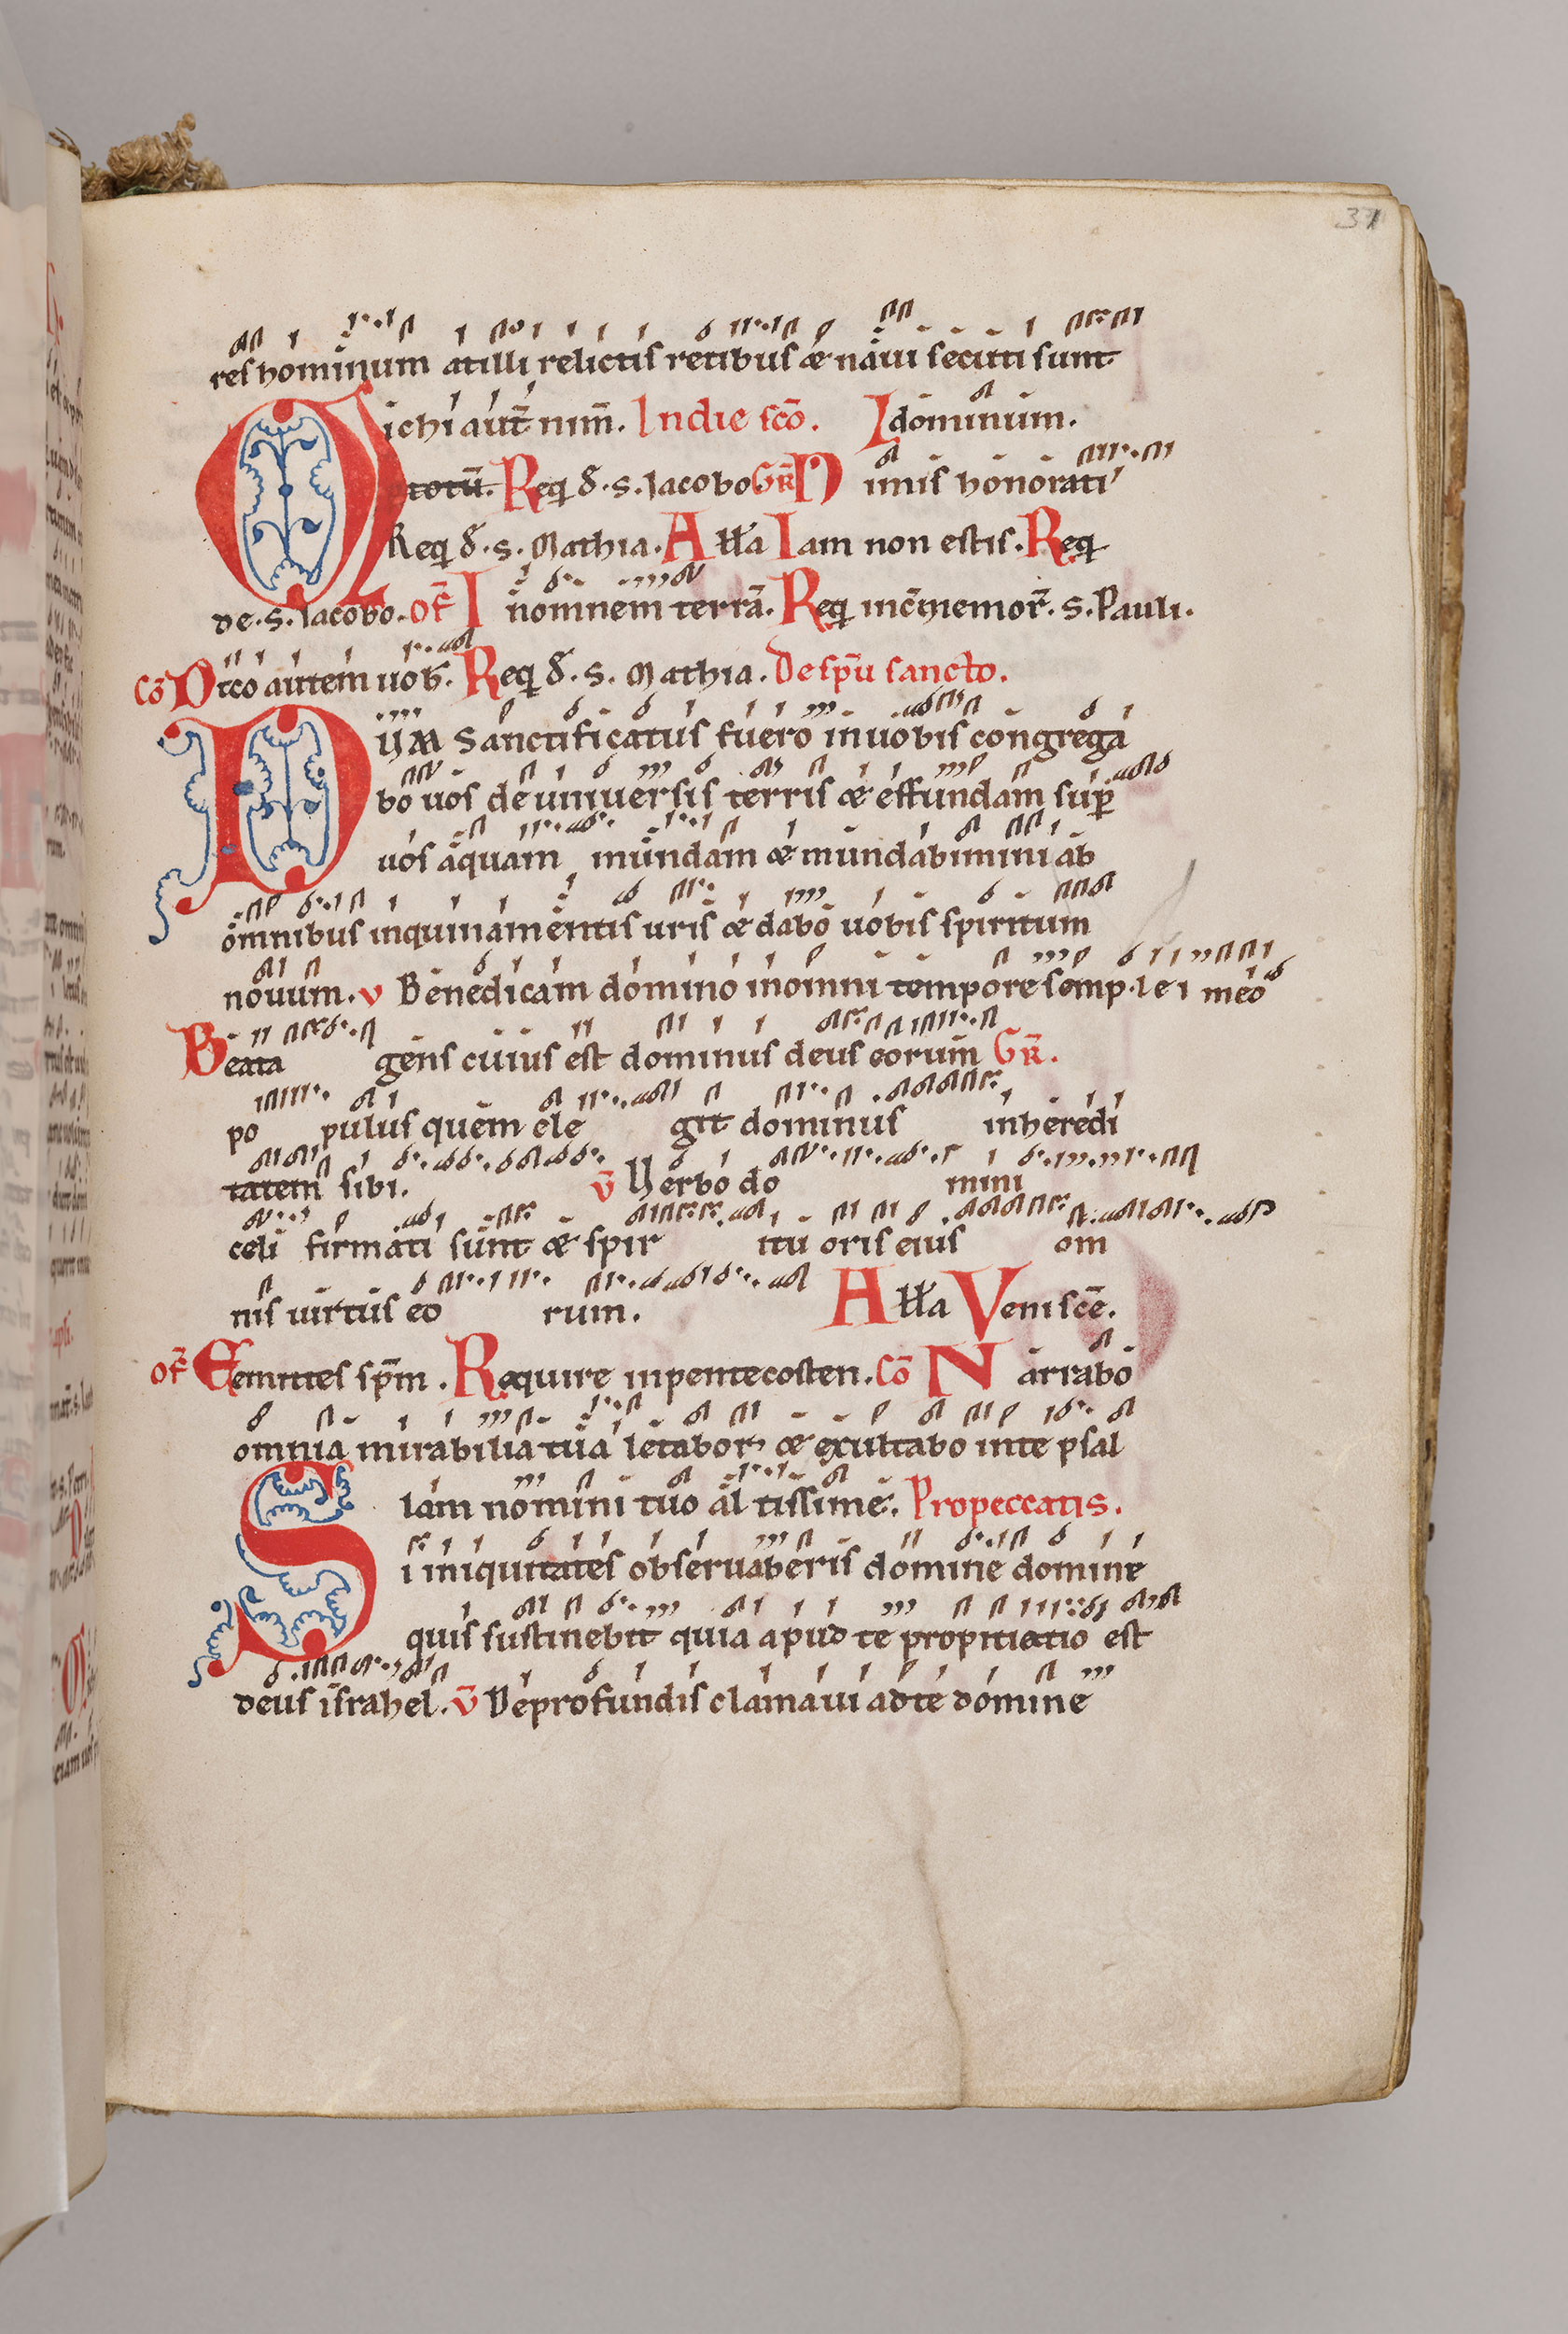 31
res hominum at illi relictis retibus & navi secuti sunt
Michi aut̄ nim̄. In die sc̄o. Ad dominum.
totū. Req d̄. s. Jacobo GR̄ Nimis honorati
Req d̄. s. Mathia. All̄a Iam non estis. Req
de. s. Jacobo. OF̄ In omnem terrā. Req in c̄memor̄. s. Pauli.
Cō Dico autem vob̄. Req d̄. s. Mathia. De sp̄u sancto.
Dum sanctificatus fuero in vobis congrega
bo vos de universis terris & effundam sup̄
vos aquam mundam & mundabimini ab
omnibus inquinamentis uris & dabo vobis spiritum
novum. v Benedicam domino in omni tempore semp. le i meo
Beata gens cuius est dominus deus eorum GR̄.
po pulus quem ele git dominus in heredi
tatem sibi. v̄ Verbo do mini
celi firmati sunt & spir itu oris eius om
nis uirtus eo rum. All̄a Veni sc̄e.
OF̄ Emittes sp̄m. Require in pentecosten. Cō Narrabo
omnia mirabilia tua letabor & exultabo in te psal
lam nomini tuo al tissime. Pro peccatis.
Si iniquitates observaberis domine domine
quis sustinebit quia apud te propitiatio est
deus israhel. v̄ De profundis clamavi ad te domine